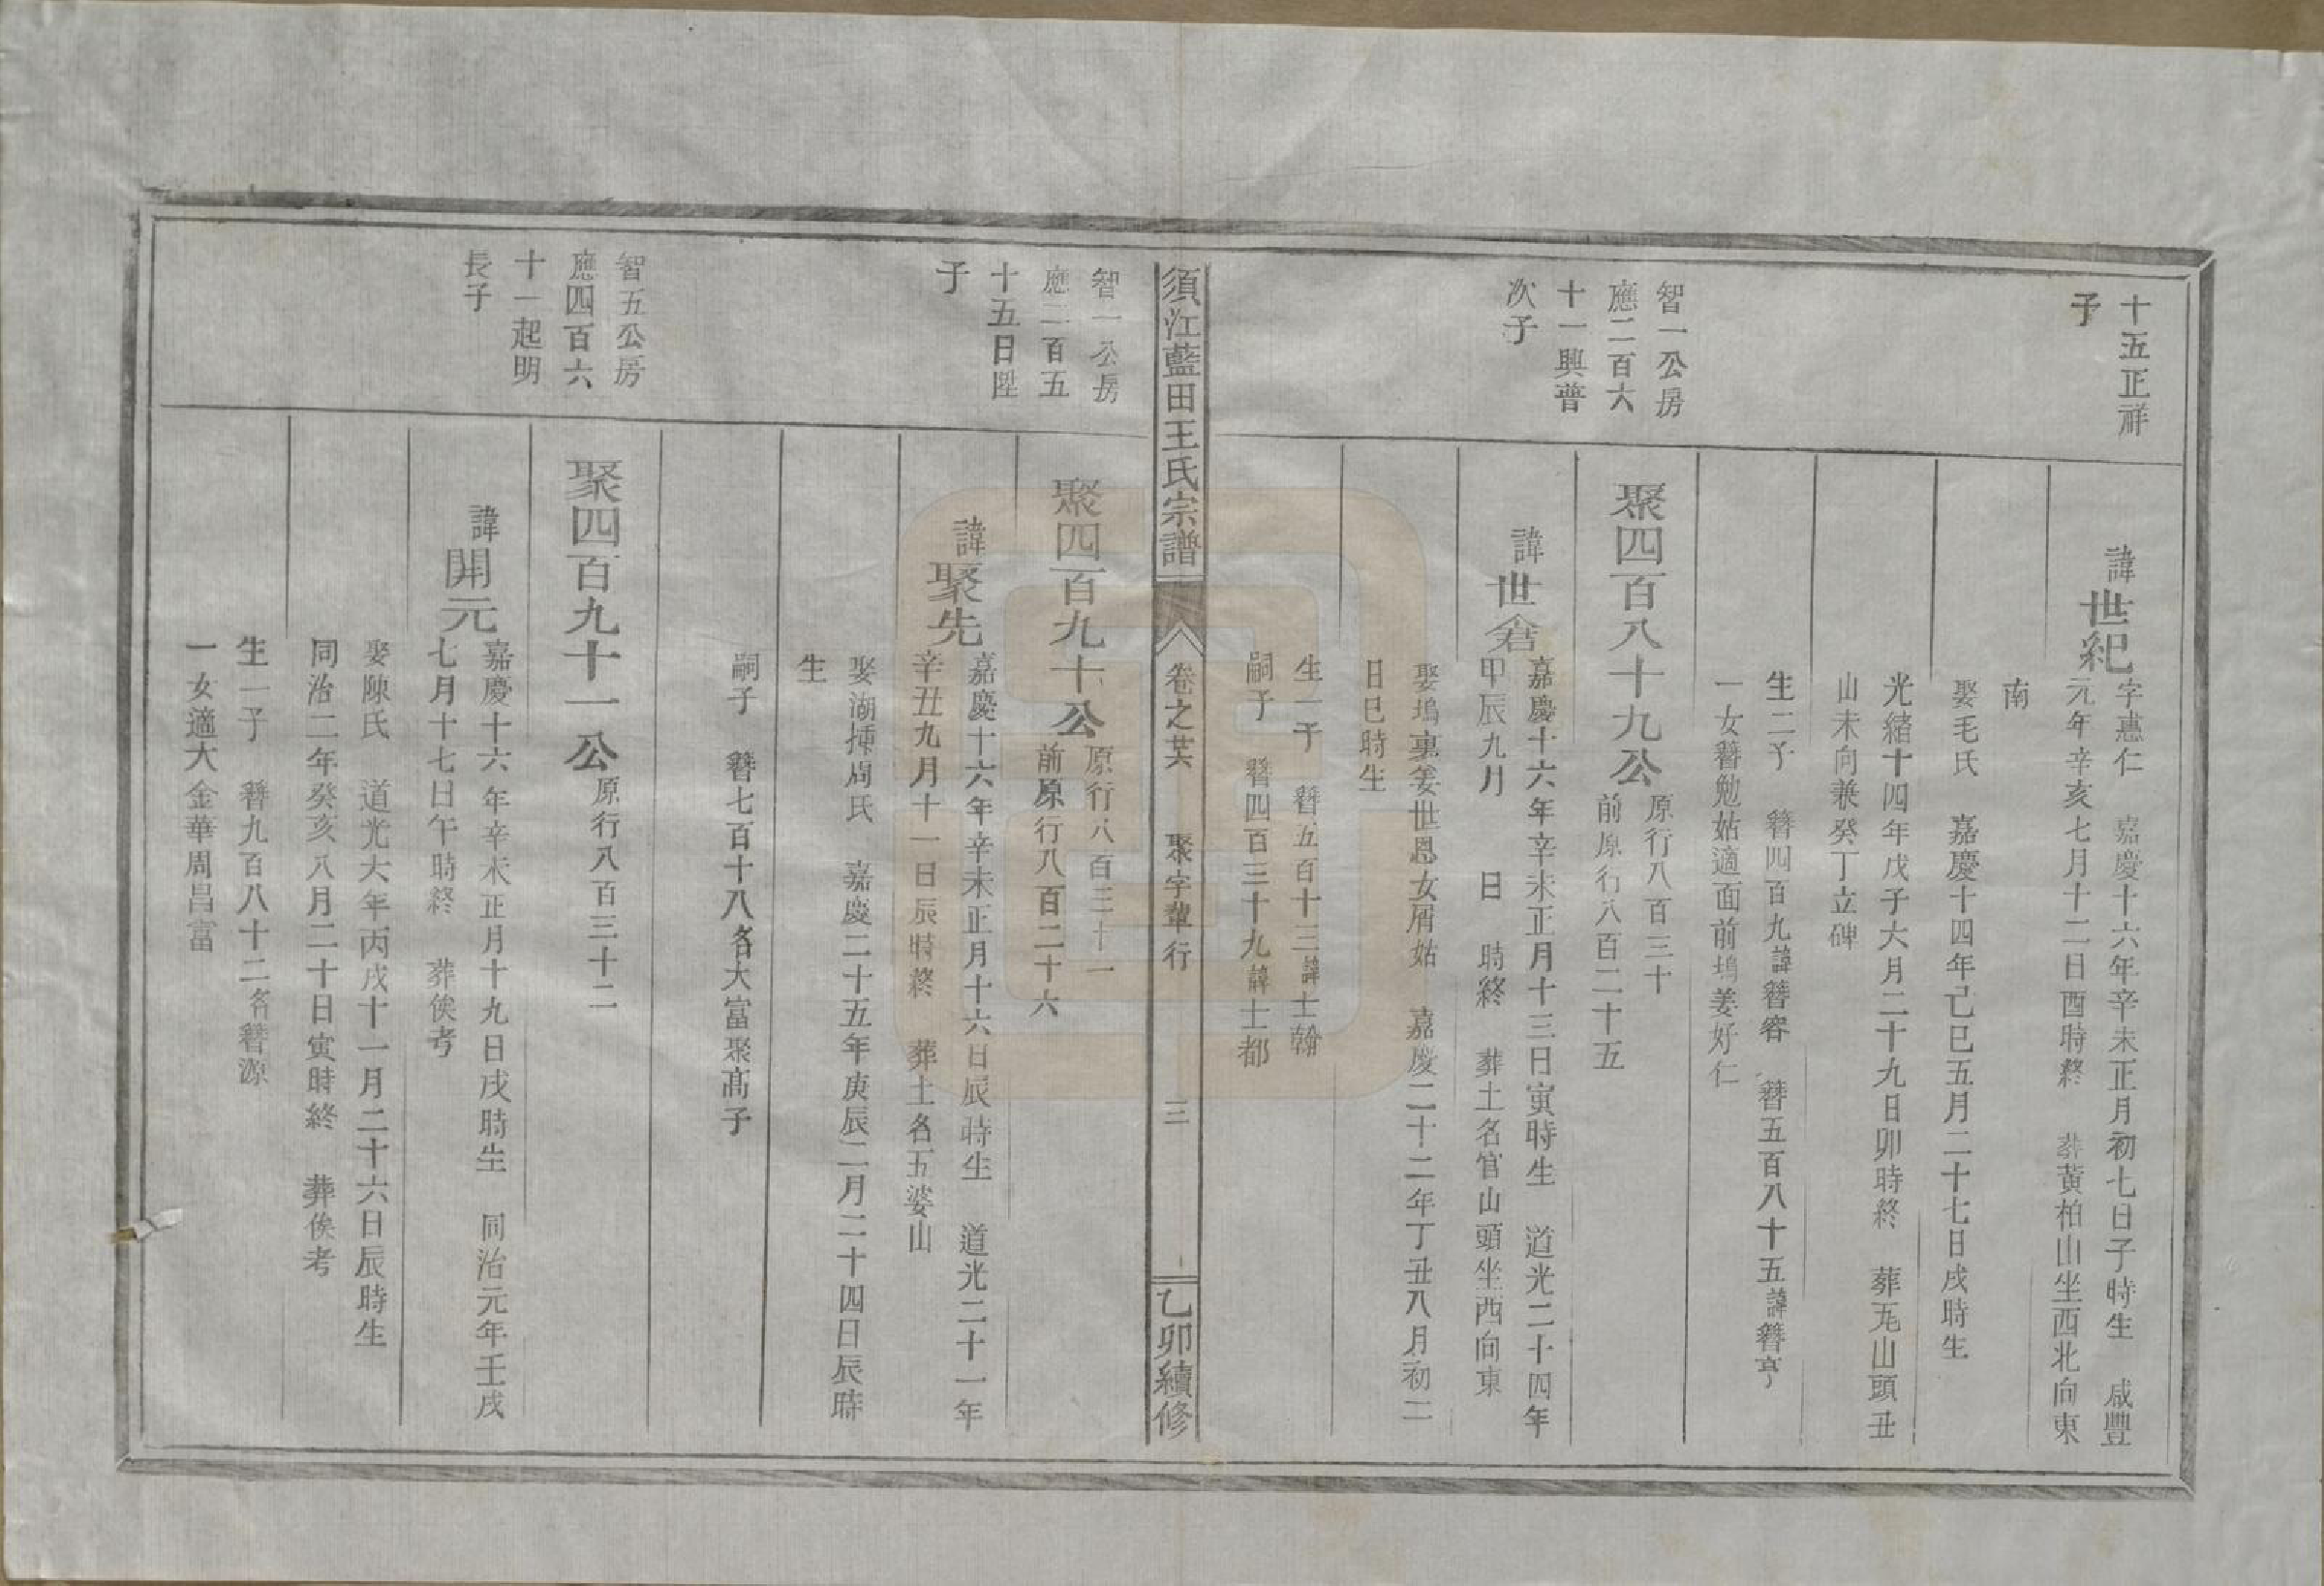 十五正祥
子
諱世紀
字憲仁　嘉慶十六年辛未正月初七日子時生　咸豐
元年辛亥七月十二日酉時終　葬黃柏山坐西北向東
南
娶毛氏　嘉慶十四年己巳五月二十七日戌時生
光緒十四年戊子六月二十九日卯時終　葬𡉏山頭丑
山未向兼癸丁立碑
生二子　簪四百九諱簪容　簪五百八十五諱簪亨
一女簪勉姑適面前塢姜好仁
智一公房
應二百六
十一興普
次子
聚四百八十九公
原行八百三十
前原行八百二十五
諱世倉
嘉慶十六年辛未正月十三日寅時生　道光二十四年
甲辰九月　日　時終　葬土名官山頭坐西向東
娶塢裏姜世恩女屑姑　嘉慶二十二年丁丑八月初二
日巳時生
生一子　簪五百十三諱士翰
嗣子　簪四百三十九諱士都
須江藍田王氏宗譜
卷之共　聚字輩行　三
乙卯續修
智一公房
應二百五
十五日陞
子
聚四百九十公
原行八百三十一
前原行八百二十六
諱聚先
嘉慶十六年辛未正月十六日辰時生　道光二十一年
辛丑九月十一日辰時終　葬土名五婆山
娶湖㨂周氏　嘉慶二十五年庚辰二月二十四日辰時
生
嗣子　簪七百十八名大富聚高子
智五公房
應四百六
十一起明
長子
聚四百九十一公
原行八百三十二
諱開元
嘉慶十六年辛未正月十九日戌時生　同治元年壬戌
七月十七日午時終　葬俟考
娶陳氏　道光六年丙戌十一月二十六日辰時生
同治二年癸亥八月二十日寅時終　葬俟考
生一子　簪九百八十二名簪源
一女適大金華周昌富